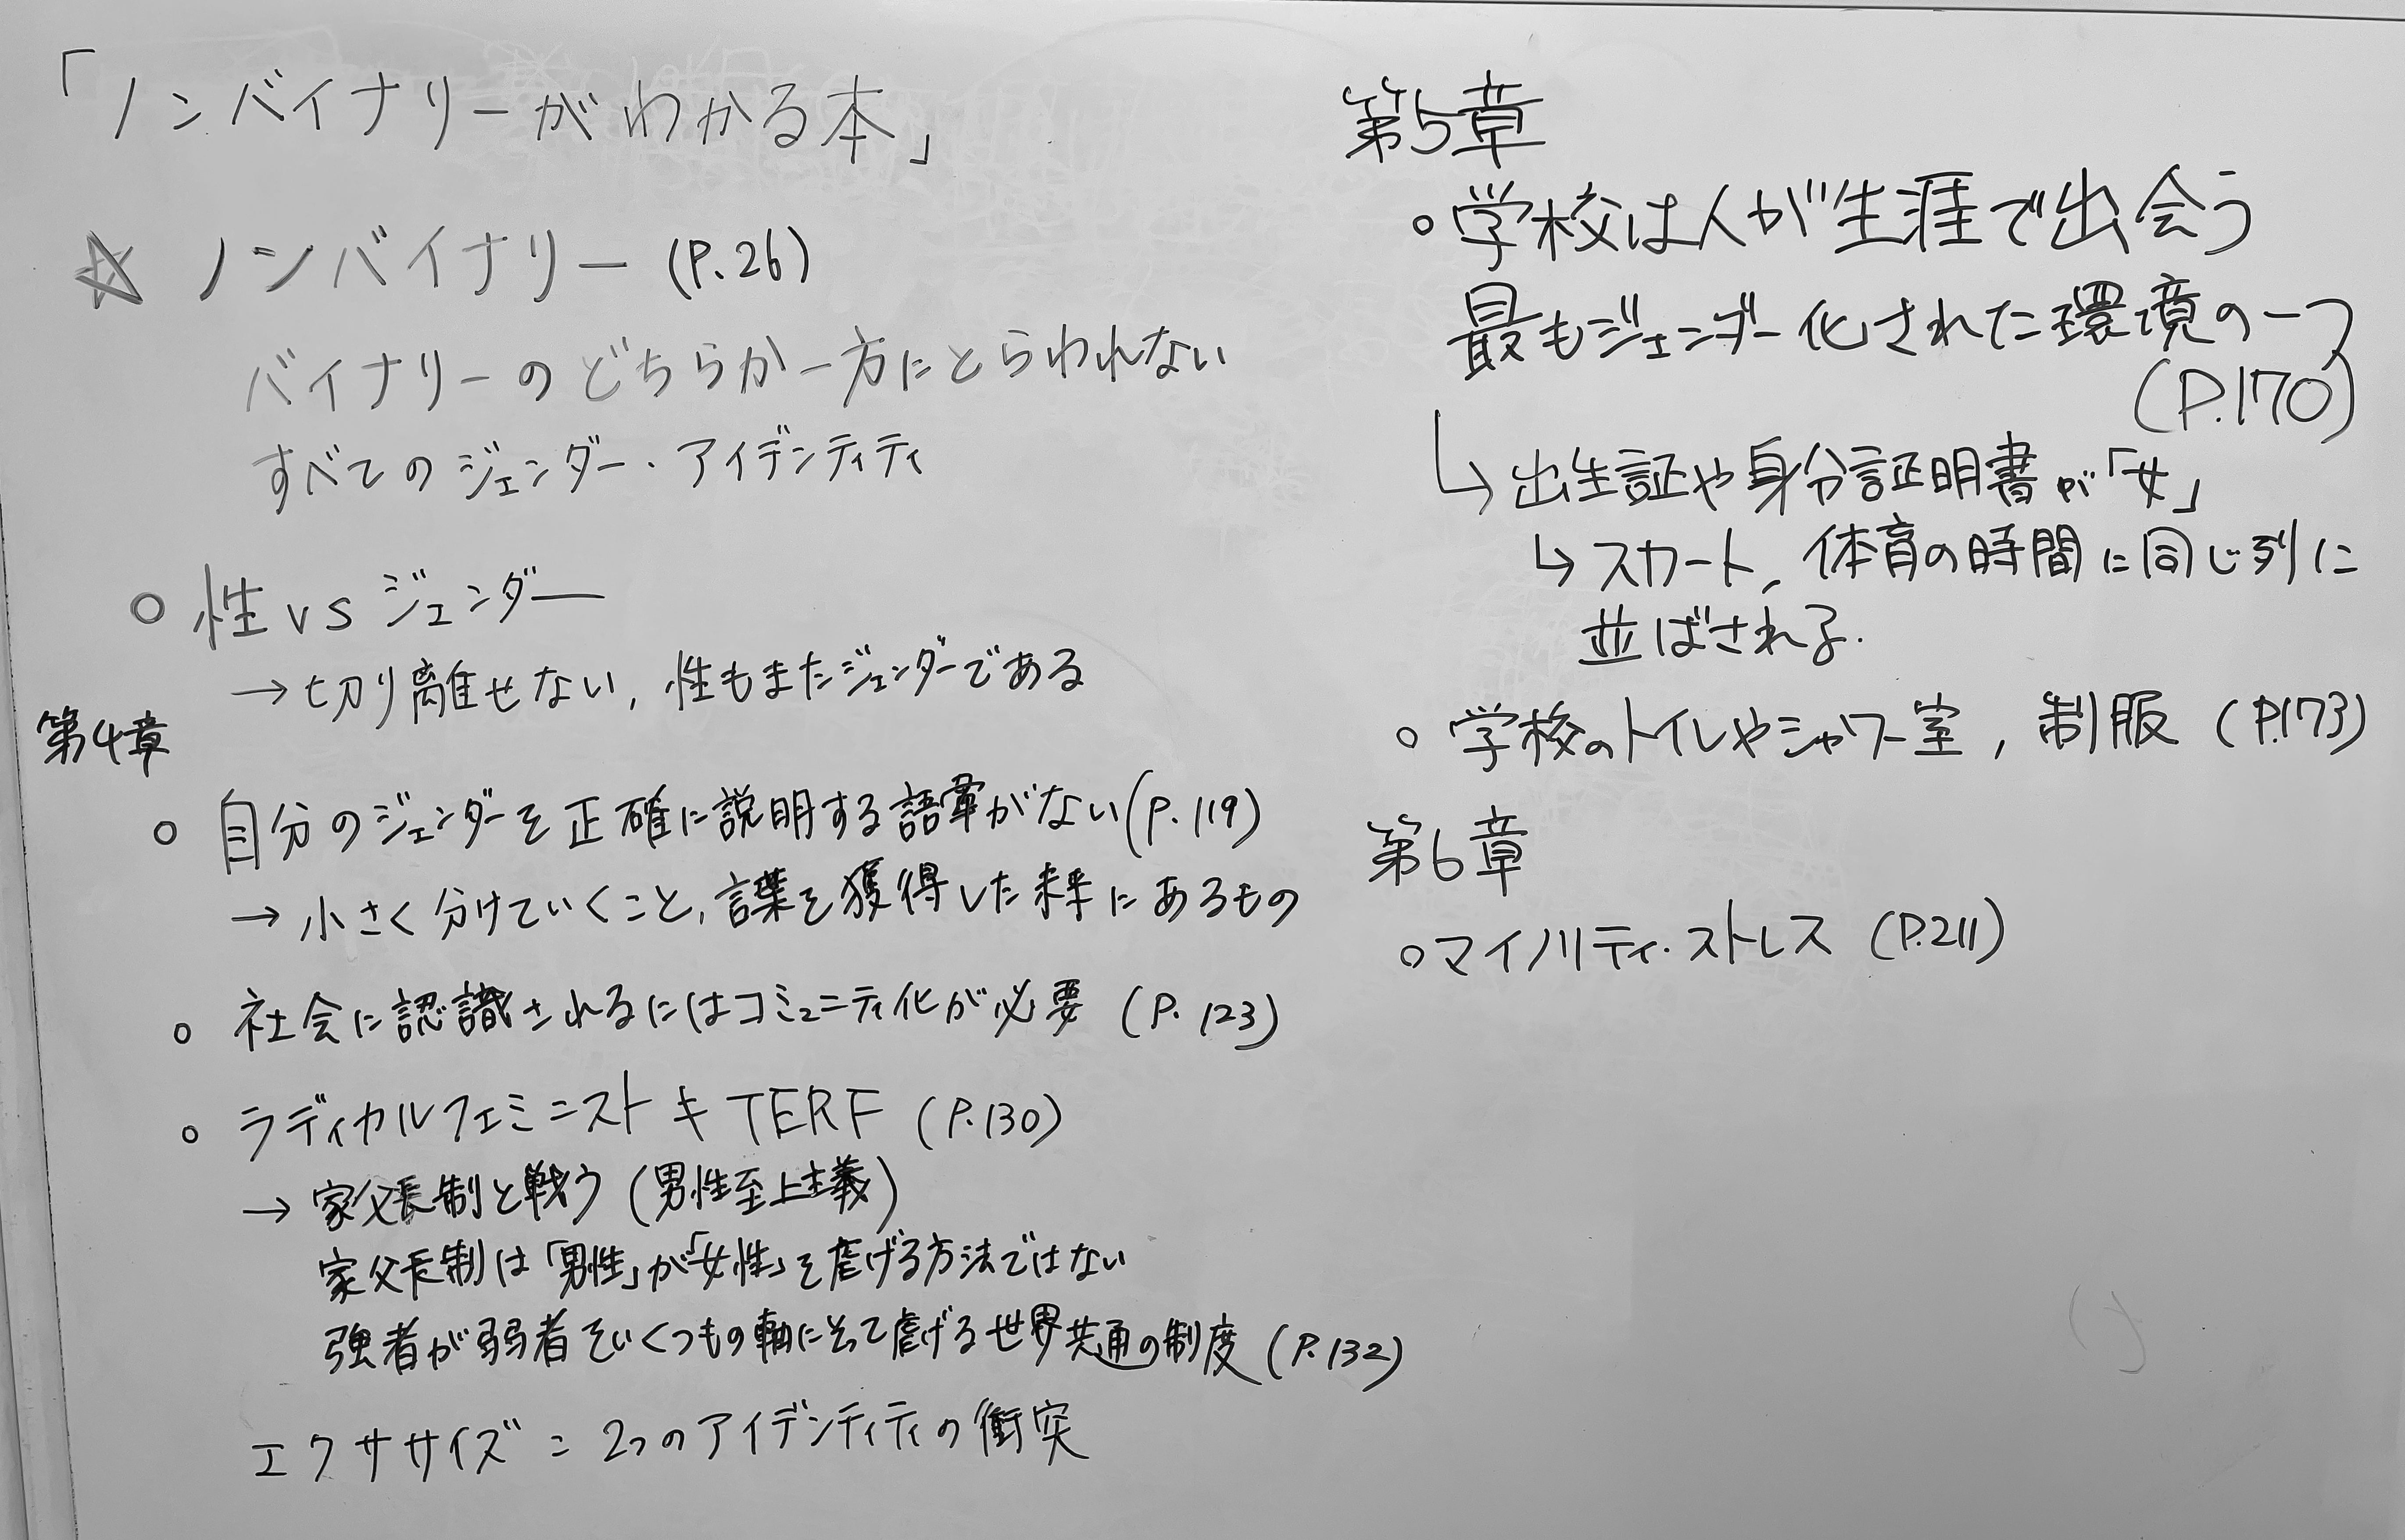 「ノンバイナリーがわかる本」
☆ ノンバイナリー (P.26)
バイナリーのどちらか一方にとらわれない
すべてのジェンダー・アイデンティティ
○ 性 vs ジェンダー
→ 切り離せない, 性もまたジェンダーである
第4章
○ 自分のジェンダーを正確に説明する語彙がない (P.119)
→ 小さく分けていくこと, 言葉を獲得した未来にあるもの
○ 社会に認識されるにはコミュニティ化が必要 (P.123)
○ ラディカルフェミニスト ≠ TERF (P.130)
→ 家父長制と戦う (男性至上主義)
家父長制は「男性」が「女性」を虐げる方法ではない
強者が弱者をいくつもの軸にそって虐げる世界共通の制度 (P.132)
エクササイズ = 2つのアイデンティティの衝突
第5章
○ 学校は人が生涯で出会う
最もジェンダー化された環境の一つ
(P.170)
↳ 出生証や身分証明書が「女」
↳ スカート, 体育の時間に同じ列に
並ばされる.
○ 学校のトイレやシャワー室, 制服 (P.173)
第6章
○ マイノリティ・ストレス (P.211)